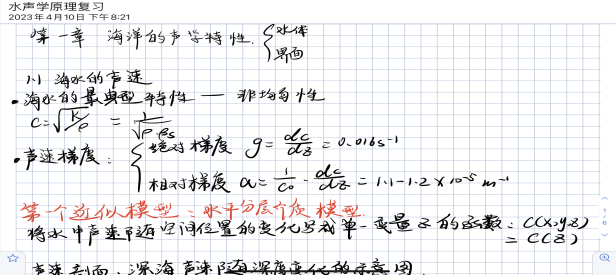 水声学原理复习
2023年4月10日 下午8:21
第一章 海洋的声学特性 { 水体
界面
1.1 海水的声速
• 海水的最典型特性 —— 非均匀性
c = √(K/ρ) = 1/√(ρβs)
• 声速梯度: { 绝对梯度 g = dc/dz = 0.016 s⁻¹
相对梯度 a = 1/c₀ · dc/dz = 1.1-1.2×10⁻⁵ m⁻¹
第一个近似模型: 水平分层介质模型
将水中声速随空间位置的变化写成单一变量z的函数: C(x,y,z)
= C(z)
声速剖面: 深海声速随深度变化的示意图